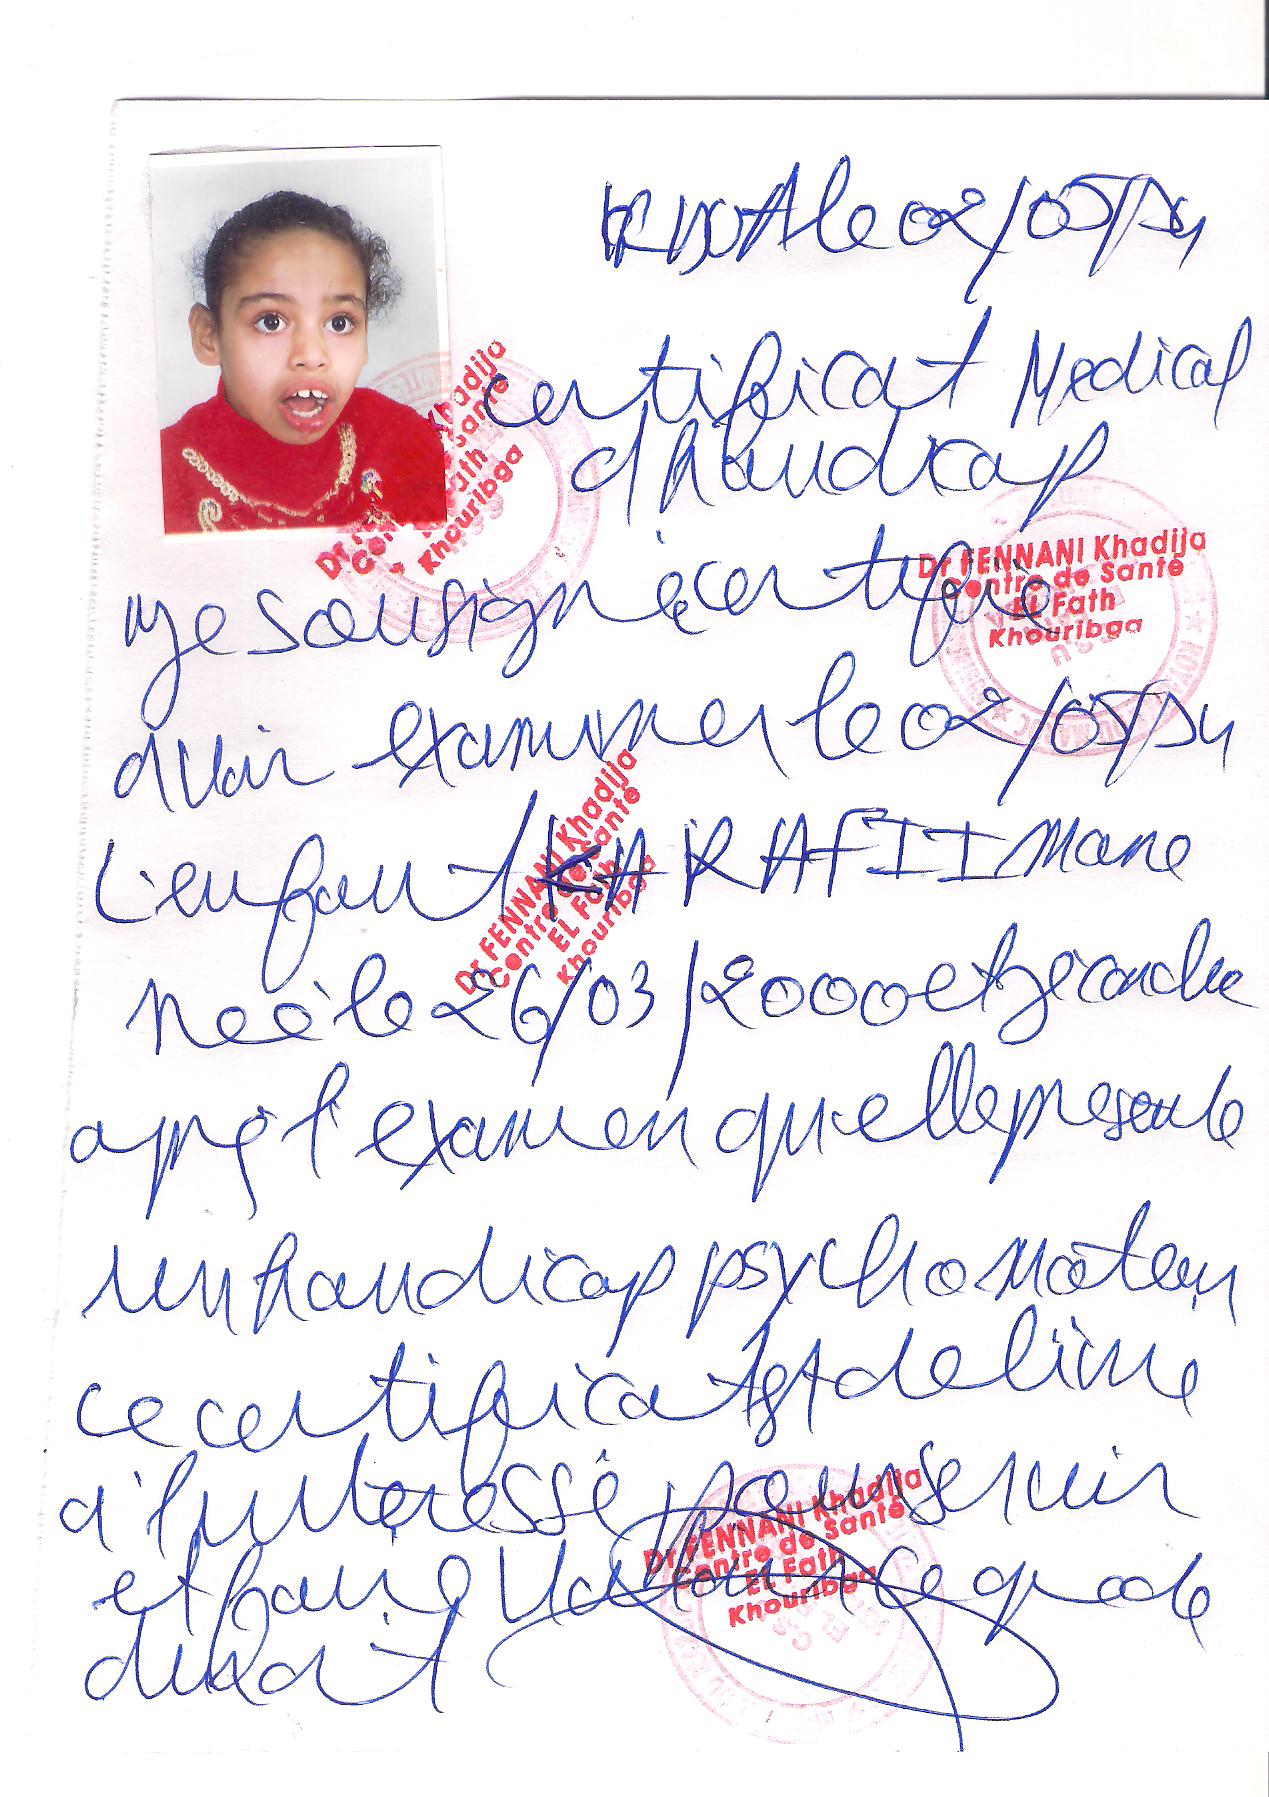 le 02/05/
certificat Medical
d'handicap
Dr FENNANI Khadija
Centre de Santé
EL Fath
Khouribga
Dr FENNANI Khadija
Centre de Santé
EL Fath
Khouribga
je sousigné certifie
avoir examiner le 02/05/
L'enfant KARAFI Imane
Neè le 26/03/2000 et je conclue
aprè l'examen qu'elle presente
un handicap psychomoteur
Dr FENNANI Khadija
Centre de Santé
EL Fath
Khouribga
ce certificat est delivre
a l'interessé pour servir
et faire valoir ce que de
droit
Dr FENNANI Khadija
Centre de Santé
EL Fath
Khouribga